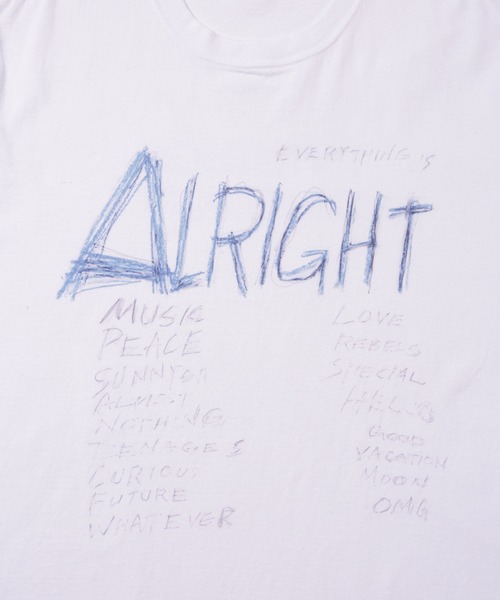 EVERYTHING is
ALRIGHT
MUSIC
PEACE
SUNNYDAY
ALMOST
NOTHING
TEENAGES
CURIOUS
FUTURE
WHATEVER
LOVE
REBELS
SPECIAL
GOOD
VACATION
MOON
OMG